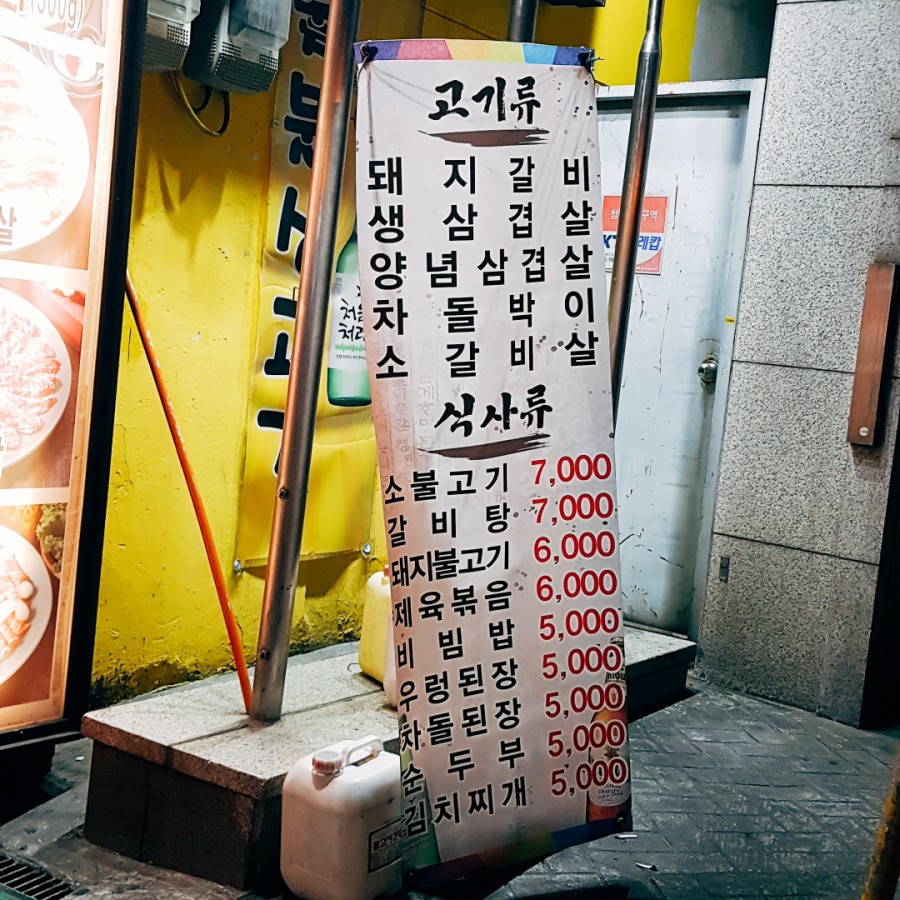 고기류
돼지갈비
생삼겹살
양념삼겹살
차돌박이
소갈비살
식사류
소불고기 7,000
갈비탕 7,000
돼지불고기 6,000
제육볶음 6,000
비빔밥 5,000
우렁된장 5,000
차돌된장 5,000
순두부 5,000
김치찌개 5,000
처음
처럼
살